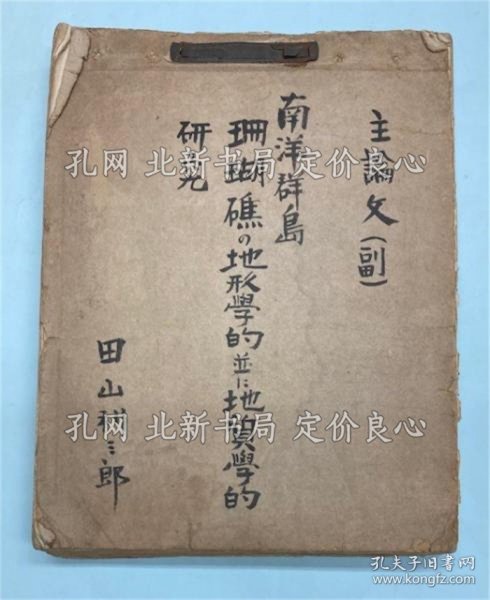 主論文(副)
南洋群島
珊瑚礁の地形學的並に地質學的
研究
田山利三郎
孔网 北新书局 定价良心
孔网 北新书局 定价良心
孔网 北新书局 定价良心
孔夫子旧书网
www.kongfz.com